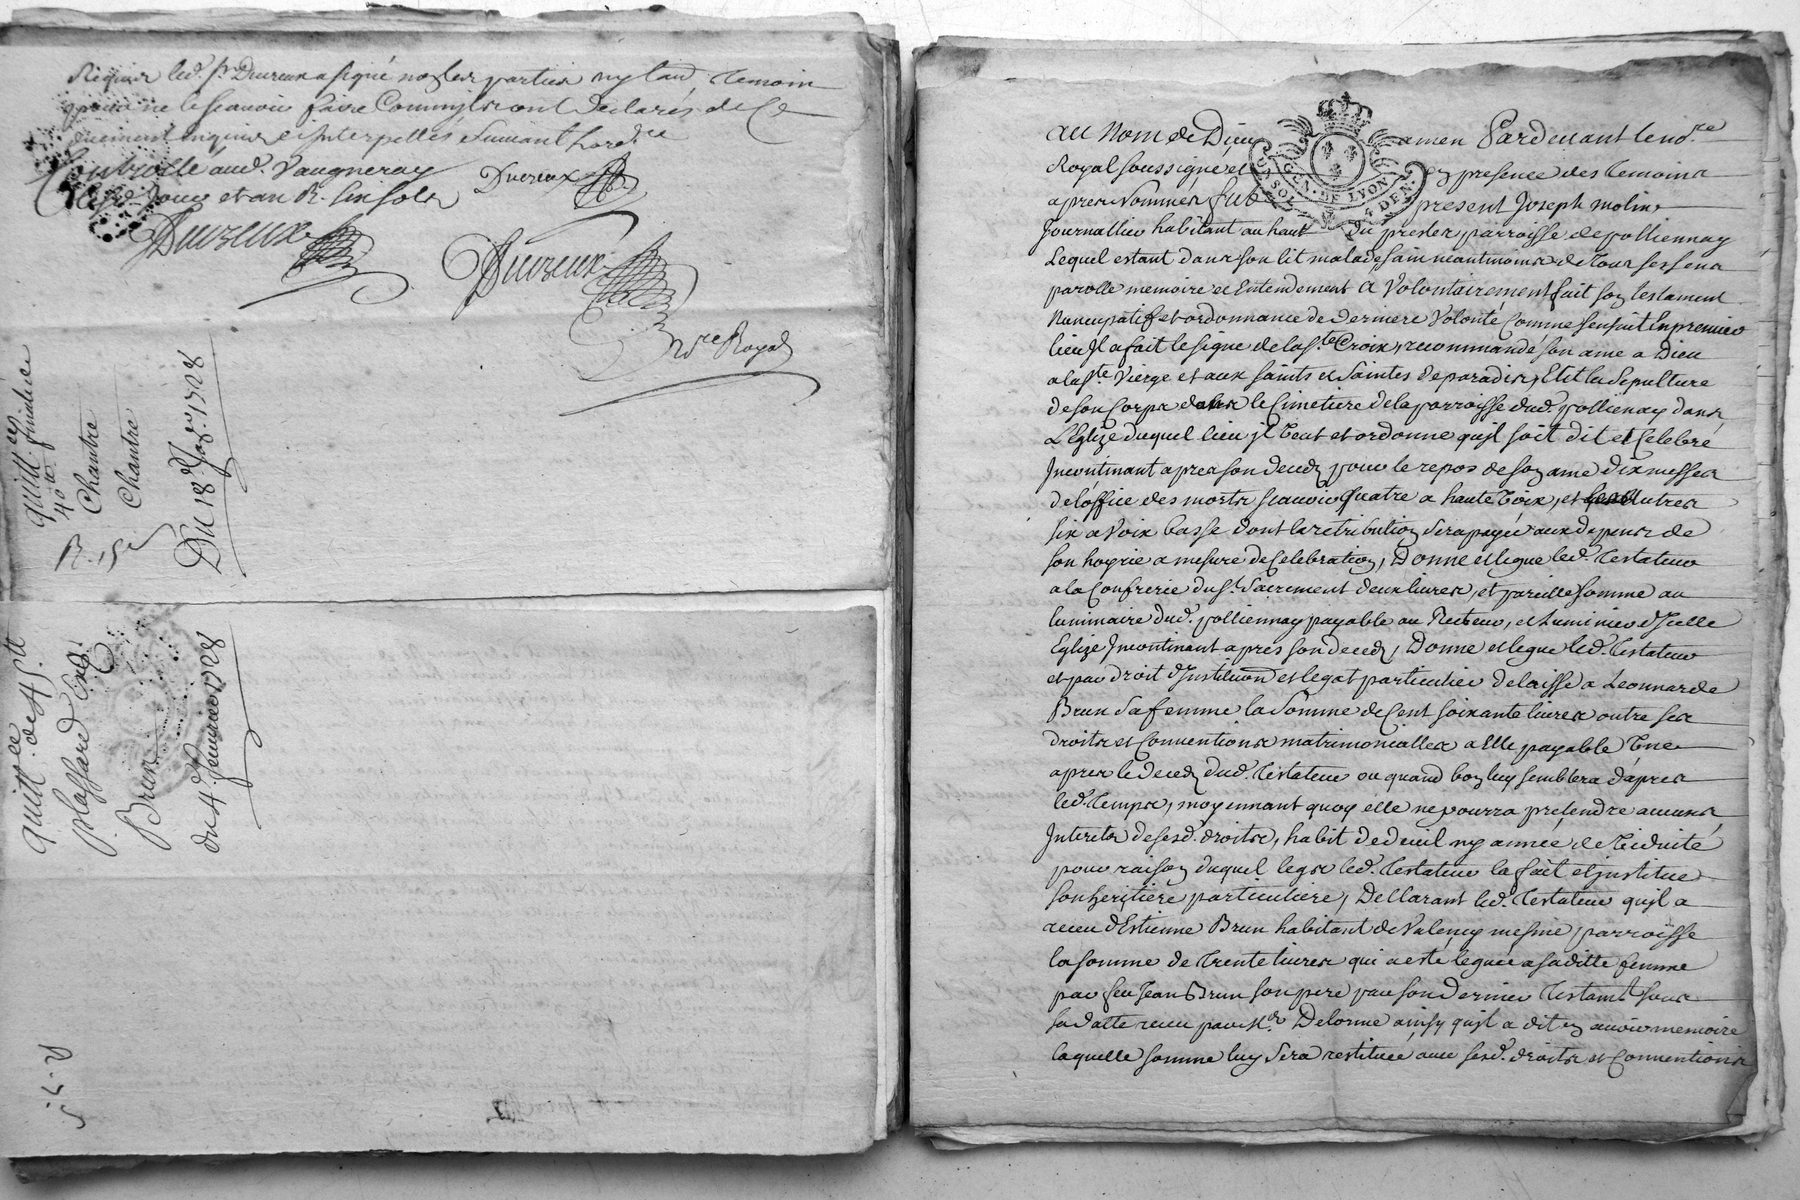 Requis led. Sr. Duvreux a signé non les parties ny laud. temoin
pour ne le scavoir faire Comm'ils ont declarés de ce
deuement enquis et interpellés suivant l'ord.ce
Controllé aud. Vaugneray Duvreux
lesd. jour et an R. six sols
Duvreux
Duvreux
n.re Royal
quitt.ce finale
40 lt
Chantre
Chantre
R. 15 s
Du 18e Jan.er 1728
quitt.ce de 45 lt
plassard
Brun
du 4e Janvier 1728
R. 7. s
GEN. DE LYON
UN SOL 4 DEN.
au Nom de Dieu amen Pardevant le no.re
Royal soussigné et en presence des temoins
apres nommés fut present Joseph molin
Journallier habitant au haut du presles, parroisse de pollienay
Lequel estant dans son lit malade, sain neantmoins de tous ses sens
parolle memoire et Entendement a volontairement fait son testament
Nuncupatif et ordonnance de derniere volonté comme s'ensuit En premier
lieu Il a fait le signe de la Ste Croix, recommandé son ame a Dieu
a la Ste Vierge et aux saints et saintes de paradis, Elit la sepulture
de son corps dans le Cimetiere de la parroisse dud. pollienay dans
L'Eglize duquel lieu il veut et ordonne qu'il soit dit et celebré
Incontinant apres son deced pour le repos de son ame dix messes
de l'office des morts scauvoir quatre a haute voix, et les autres
six a voix basse dont la retribution sera payée aux depens de
son hoyrie a mesure de celebration, Donne et legue led. testateur
a la Confrerie du St. Sacrement deux livres, et pareille somme au
luminaire dud. pollienay payable au Recteur, et Luminier d'Icelle
Eglize Incontinant apres son deced, Donne et legue led. testateur
et par droit d'Institution et legat particulier delaisse a Leonnarde
Brun sa femme la somme de Cent soixante livres outre ses
droits et Conventions matrimonialles a Elle payable Une
apres le deced dud. testateur ou quand bon luy semblera d'apres
led. temps, moyennant quoy elle ne pourra pretendre aucuns
Interets de sesd. droits, habit de deuil ny année de viduité
pour raison duquel legs led. testateur la fait et institue
son heritiere particuliere, Declarant led. testateur qu'il a
receu d'Estienne Brun habitant de Valency mesme parroisse
la somme de trente livres qui a esté leguée a saditte femme
par feu Jean Brun son pere par son dernier testamt. sous
sa datte receu par Me. Delorme ainsy qu'il a dit en avoir memoire
laquelle somme luy sera restituée avec sesd. droits et Conventions